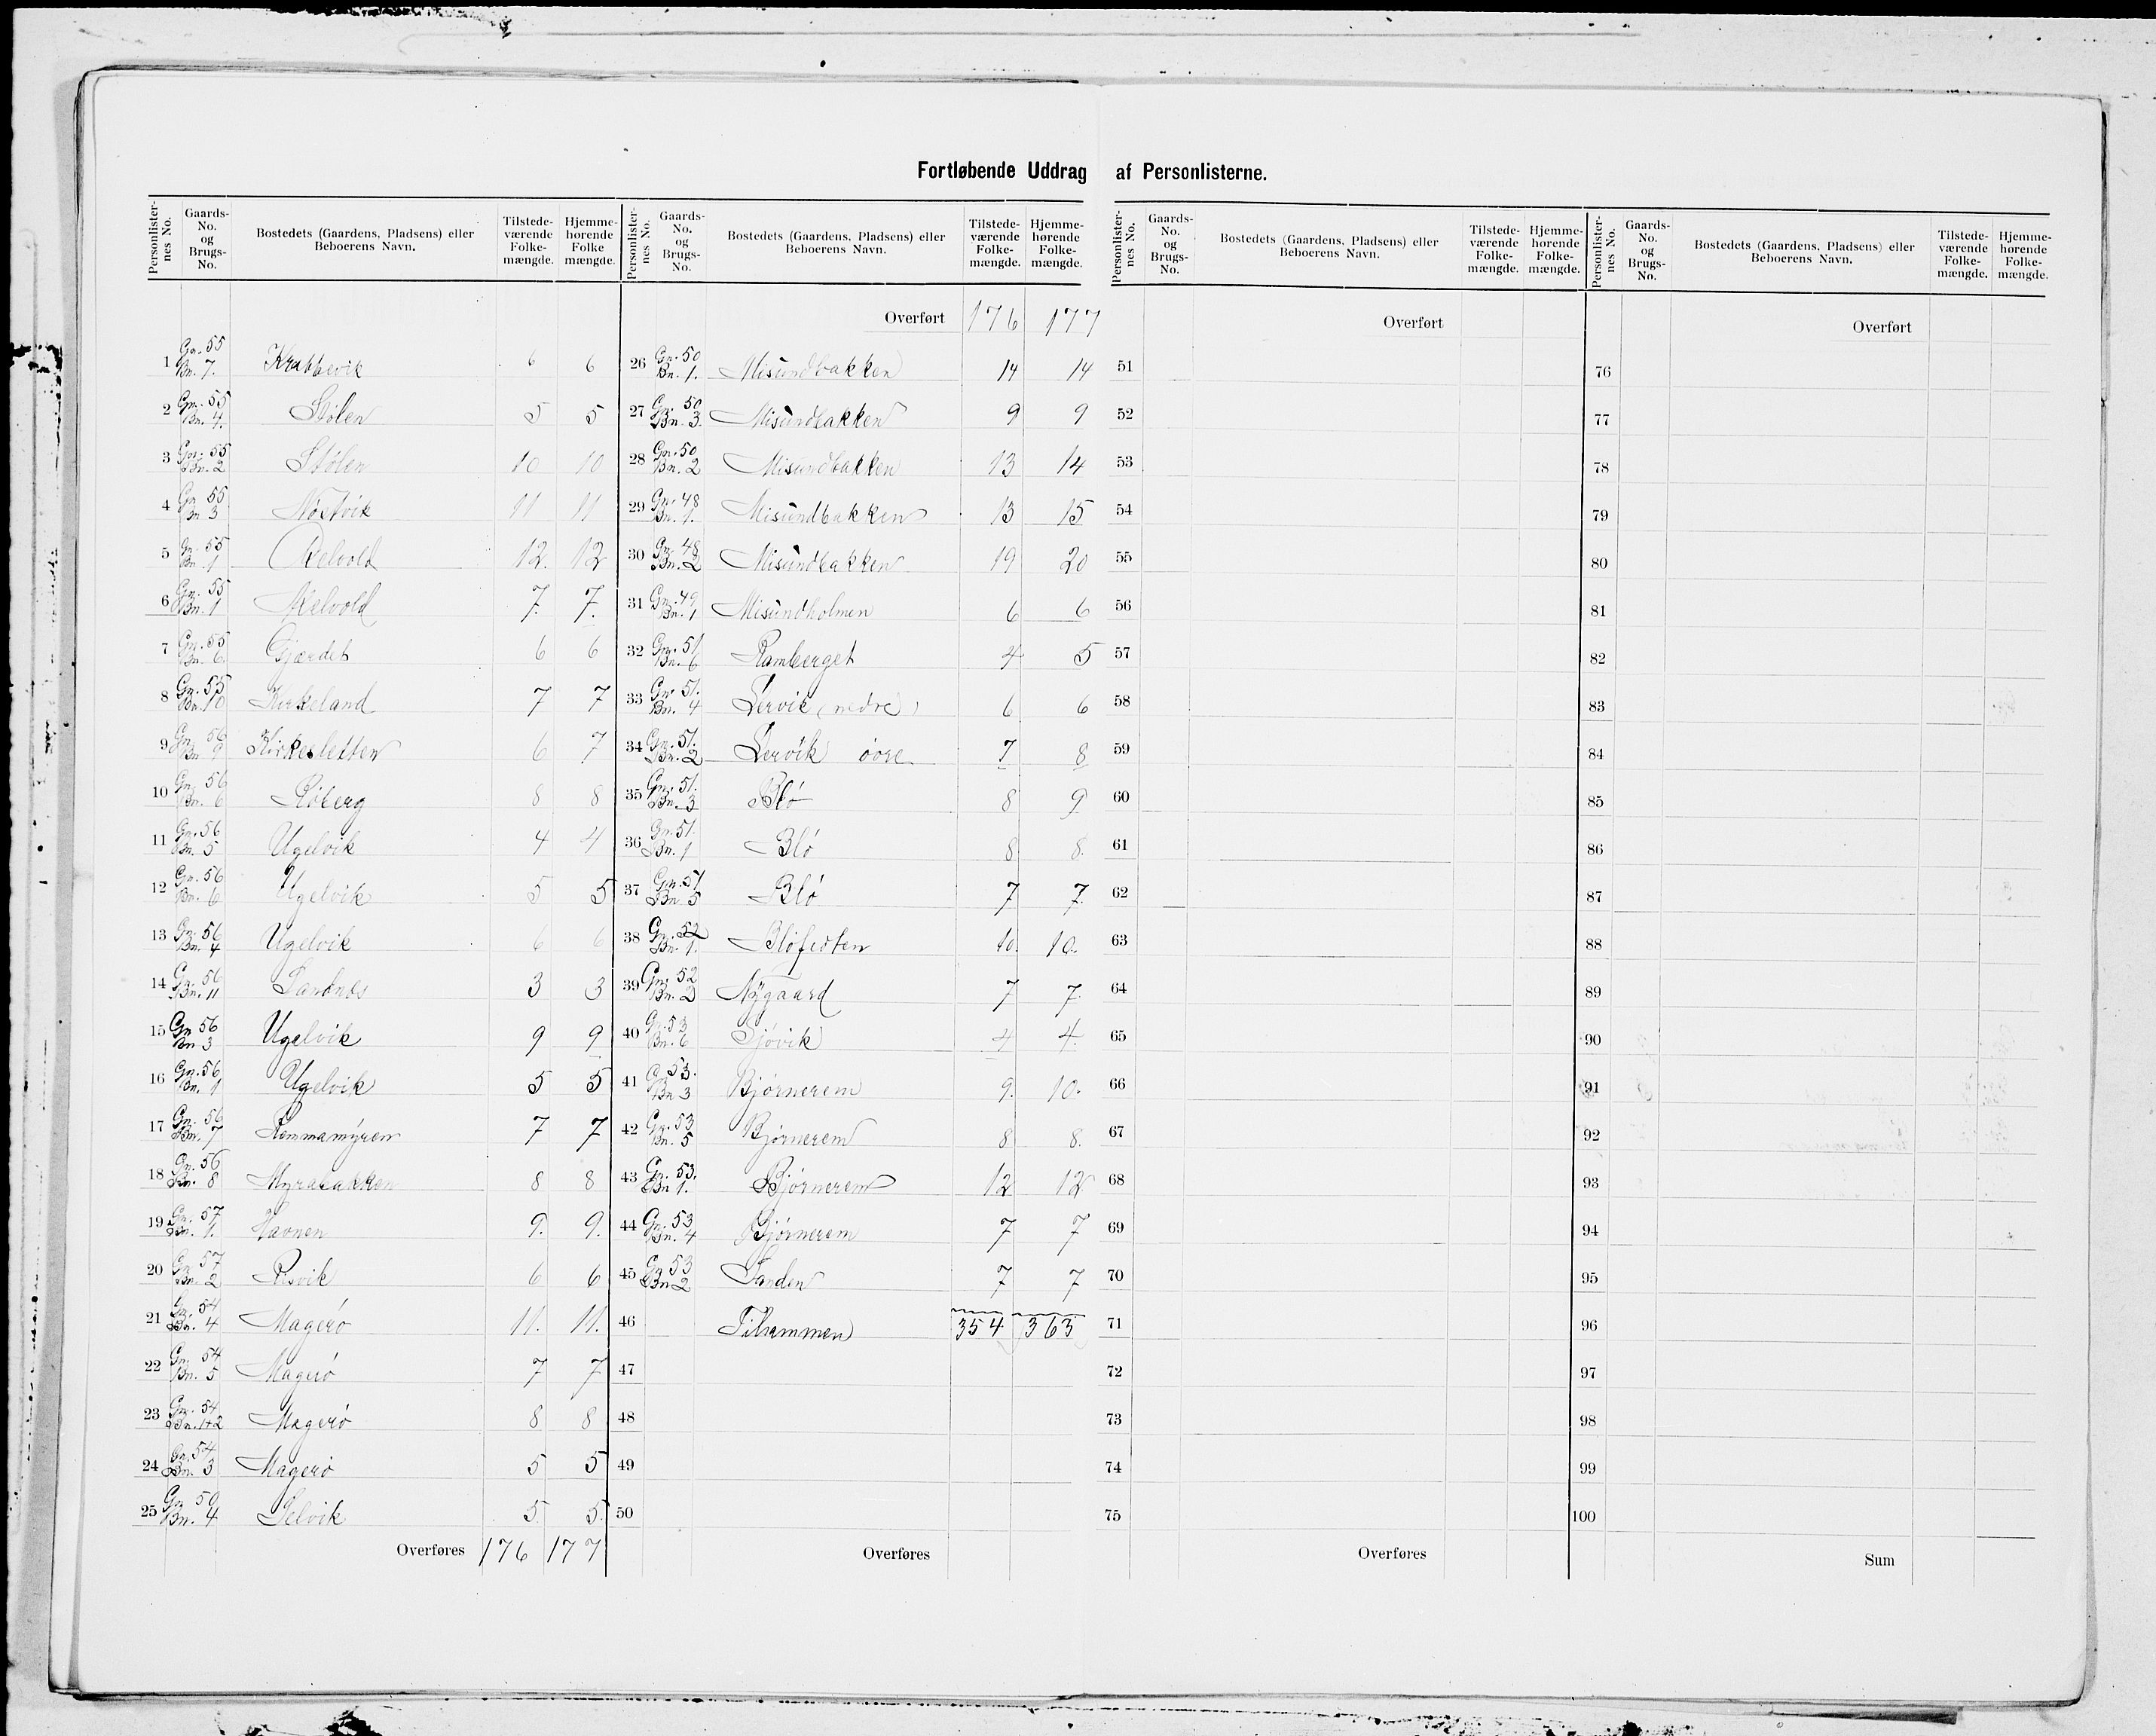 Fortløbende Uddrag af Personlisterne.
Personlisternes No. Gaards-No. og Brugs-No. Bostedets (Gaardens, Pladsens) eller Beboerens Navn. Tilstedeværende Folkemængde. Hjemmehørende Folkemængde.
1 Gn. 55 Bn. 7. Krabbevik 6 6
2 Gn. 55 Bn. 4. Stølen 5 5
3 Gn. 55 Bn. 2 Stølen 10 10
4 Gn 55 Bn 3 Nøstvik 11 11
5 Gn. 55 Bn. 1 Melvold 12. 12
6 Gn. 55 Bn. 1 Melvold 7. 7.
7 Gn. 55 Bn. 6. Gjærdet 6 6
8 Gn. 55 Bn. 10 Kirkeland 7 7
9 Gn. 56 Bn 9 Kirkesletten 6 7
10 Gn. 56 Bn. 6 Røberg 8 8
11 Gn. 56 Bn. 5 Ugelvik 4 4
12 Gn. 56 Bn. 6 Ugelvik 5 5
13 Gn. 56 Bn. 4 Ugelvik 6 6
14 Gn. 56 Bn. 11 Sandnes 3 3
15 Gn 56 Bn 3 Ugelvik 9 9
16 Gn. 56 Bn. 1 Ugelvik 5 5
17 Gn. 56 Bn. 7 Remmamyren 7 7
18 Gn. 56 Bn. 8 Myrabakken 8 8
19 Gn. 57 Bn. 1. Havnen 9. 9.
20 Gn 57 Bn. 2 Risvik 6 6
21 Gn. 54 Bn. 4 Magerø 11. 11.
22 Gn. 54 Bn. 5 Magerø 7 7
23 Gn. 54 Bn. 1+2 Magerø 8 8
24 Gn. 54 Bn. 3 Magerø 5 5
25 Gn 50 Bn. 4 Selvik 5. 5.
Overføres 176 177
Personlisternes No. Gaards-No. og Brugs-No. Bostedets (Gaardens, Pladsens) eller Beboerens Navn. Tilstedeværende Folkemængde. Hjemmehørende Folkemængde.
Overført 176 177
26 Gn. 50 Bn. 1. Misundbakken 14 14
27 Gn. 50 Bn. 3. Misundbakken 9 9
28 Gn. 50 Bn. 2 Misundbakken 13 14
29 Gn. 48 Bn. 1. Misundbakken 13 15
30 Gn. 48 Bn. 2 Misundbakken 19 20
31 Gn. 49 Bn. 1 Misundholmen 6 6
32 Gn. 51 Bn. 6 Ramberget 4 5
33 Gn. 51. Bn. 4 Lervik (nedre) 6 6
34 Gn. 51. Bn. 2 Lervik øvre 7 8
35 Gn. 51. Bn. 3 Blø 8 9
36 Gn. 51. Bn. 1 Blø 8 8.
37 Gn. 51 Bn 5 Blø 7 7
38 Gn. 52 Bn 1. 10. 10.
39 Gn. 52 Bn. 2 Nygaard 7 7
40 Gn. 53 Bn. 6 Sjøvik 4 4.
41 G 53. Bn 3 Bjørnerem 9. 10.
42 Gn. 53 Bn. 5 Bjørnerem 8 8.
43 Gn. 53. Bn 1. Bjørnerem 12 12
44 Gn. 53 Bn. 4 Bjørnerem 7 7
45 Gn 53 Bn 2 Sanden 7 7
46 Tilsammen 354 363
47
48
49
50
Overføres
Personlisternes No. Gaards-No. og Brugs-No. Bostedets (Gaardens, Pladsens) eller Beboerens Navn. Tilstedeværende Folkemængde. Hjemmehørende Folkemængde.
Overført
51
52
53
54
55
56
57
58
59
60
61
62
63
64
65
66
67
68
69
70
71
72
73
74
75
Overføres
Personlisternes No. Gaards-No. og Brugs-No. Bostedets (Gaardens, Pladsens) eller Beboerens Navn. Tilstedeværende Folkemængde. Hjemmehørende Folkemængde.
Overført
76
77
78
79
80
81
82
83
84
85
86
87
88
89
90
91
92
93
94
95
96
97
98
99
100
Sum